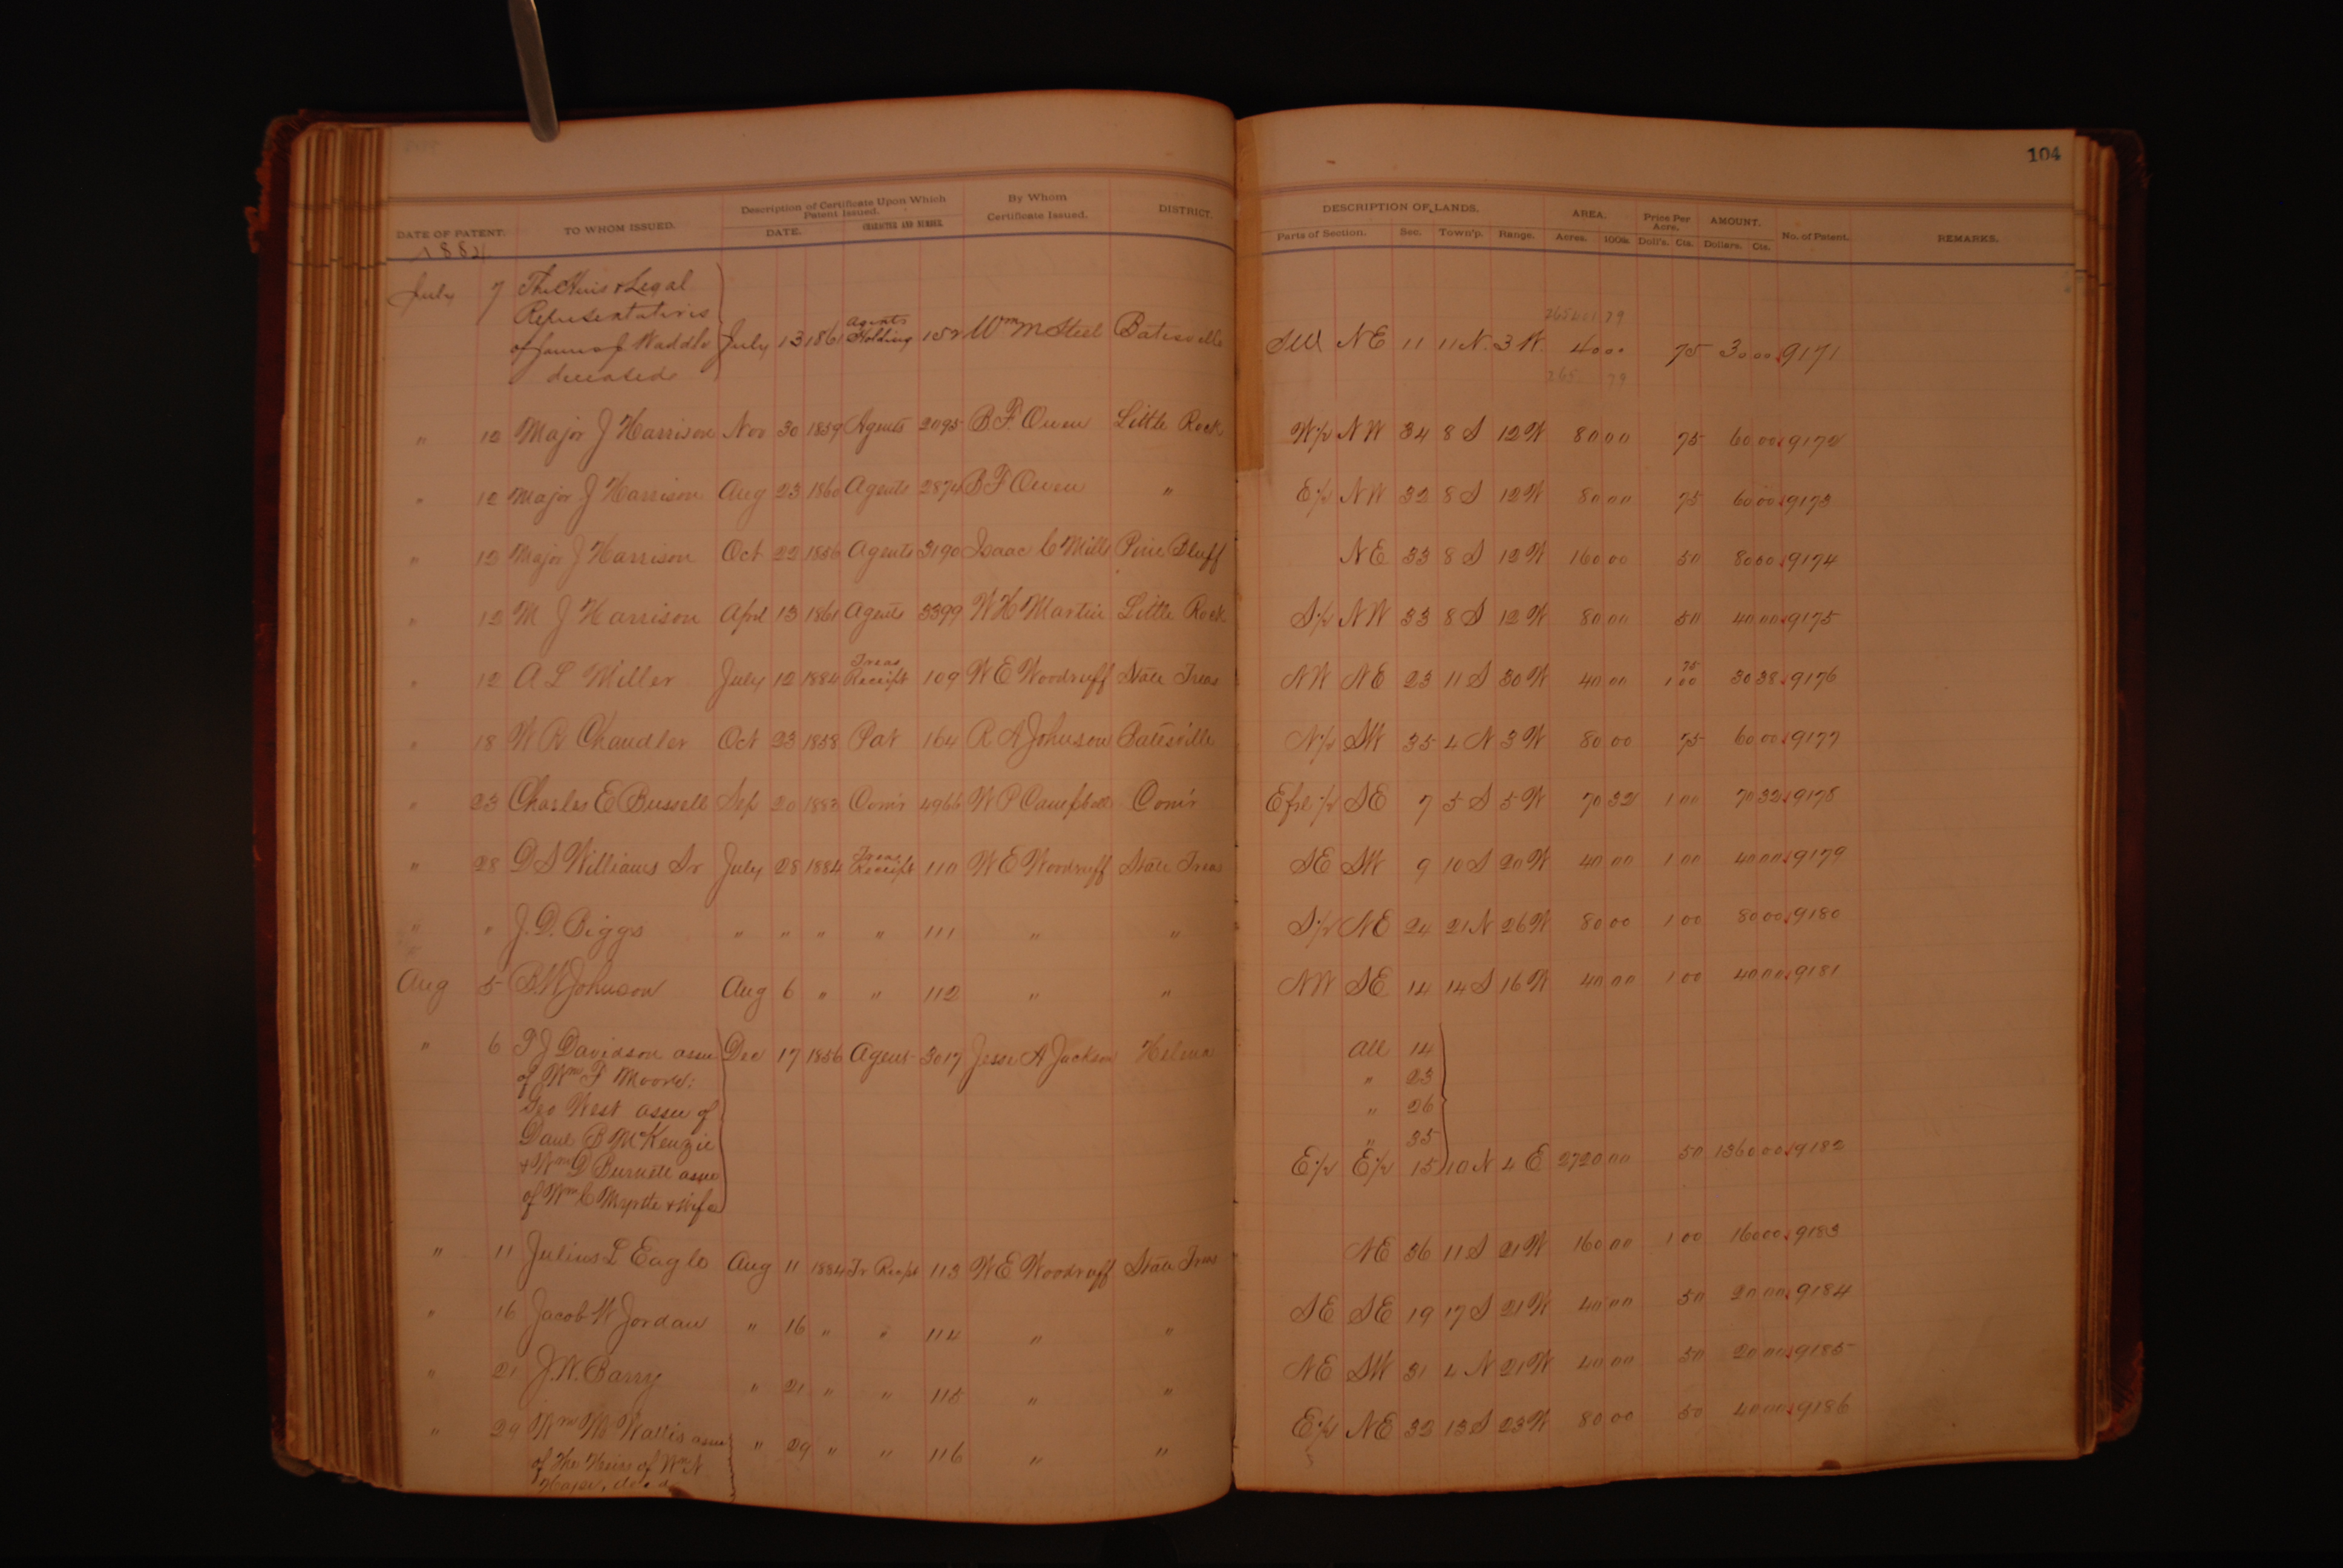 104
DATE OF PATENT. TO WHOM ISSUED. Description of Certificate Upon Which Patent Issued. DATE. CHARACTER AND NUMBER. By Whom Certificate Issued. DISTRICT. DESCRIPTION OF LANDS. Parts of Section. Sec. Town'p. Range. AREA. Acres. 100ths Price Per Acre. Doll's. Cts. AMOUNT. Dollars. Cts. No. of Patent. REMARKS.
1884
July 7 The Heirs & Legal
Representatives
of James J Waddle July 13 1861 Agents Holding 152 Wm M Steel Batesville SW NE 11 11 N. 3 W. 40 00 75 30 00 9171
deceased
" 12 Major J Harrison Nov 30 1859 Agents 2095 B F. Owen Little Rock W ½ NW 34 8 S 12 W 80 00 75 60 00 9172
" 12 Major J Harrison Aug 23 1860 Agents 2874 B F Owen " E ½ NW 32 8 S 12 W 80 00 75 60 00 9173
" 12 Major J Harrison Oct 22 1856 Agents 3190 Isaac C Mills Pine Bluff NE 33 8 S 12 W 160 00 50 80 00 9174
" 12 M J Harrison Aprl 13 1861 Agents 3399 W H Martin Little Rock S ½ NW 33 8 S 12 W 80 00 50 40 00 9175
" 12 A L Miller July 12 1884 Treas Receipt 109 W E Woodruff State Treas NW NE 23 11 S 30 W 40 00 75 1 00 30 38 9176
" 18 W R Chandler Oct 23 1858 Pat 164 R A Johnson Batesville N ½ SW 35 4 N 3 W 80 00 75 60 00 9177
" 23 Charles E Bussell Sep 20 1883 Com'r 4966 W P Campbell Com'r E frl ½ SE 7 5 S 5 W 70 32 1 00 70 32 9178
" 28 D S Williams Sr July 28 1884 Treas Receipt 110 W E Woodruff State Treas SE SW 9 10 S 20 W 40 00 1 00 40 00 9179
" " J. D. Biggs " " " " 111 " " S ½ NE 24 21 N 26 W 80 00 1 00 80 00 9180
Aug 5 B. W Johnson Aug 6 " " 112 " " NW SE 14 14 S 16 W 40 00 1 00 40 00 9181
" 6 T J Davidson assee Dec 17 1856 Agents 3017 Jesse A Jackson Helena All 14
of Wm F Moore: " 23
Geo West assee of " 26
Danl B McKenzie " 35
& Wm D Burnett assee E ½ E ½ 15 10 N 4 E 2720 00 50 1360 00 9182
of Wm C Myrtle & Wife
" 11 Julius L Eagle Aug 11 1884 Tr Recpt 113 W E Woodruff State Treas NE 36 11 S 21 W 160 00 1 00 160 00 9183
" 16 Jacob W Jordan " 16 " " 114 " " SE SE 19 17 S 21 W 40 00 50 20 00 9184
" 21 J. W. Barry " 21 " " 115 " " NE SW 31 4 N 21 W 40 00 50 20 00 9185
" 29 Wm W Wallis assee " 29 " " 116 " " E ½ NE 32 13 S 23 W 80 00 50 40 00 9186
of the Heirs of Wm N